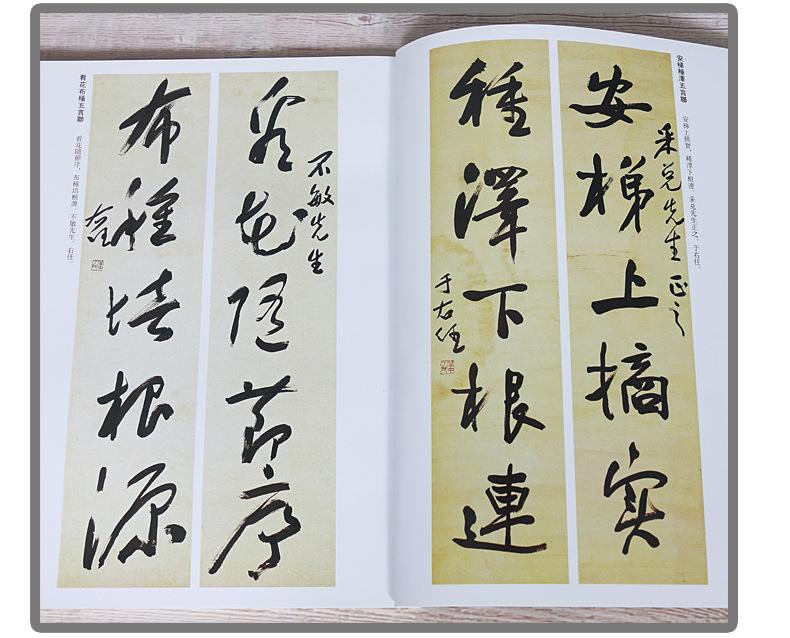 安梯種澤五言聯
安梯上摘實，種澤下根連。采兌先生正之。于右任。
采兌先生正之
安梯上摘实
種澤下根連
于右任
不敏先生
看花随節序
布種培根源
右任
看花布種五言聯
看花隨節序，布種培根源。不敏先生。右任。